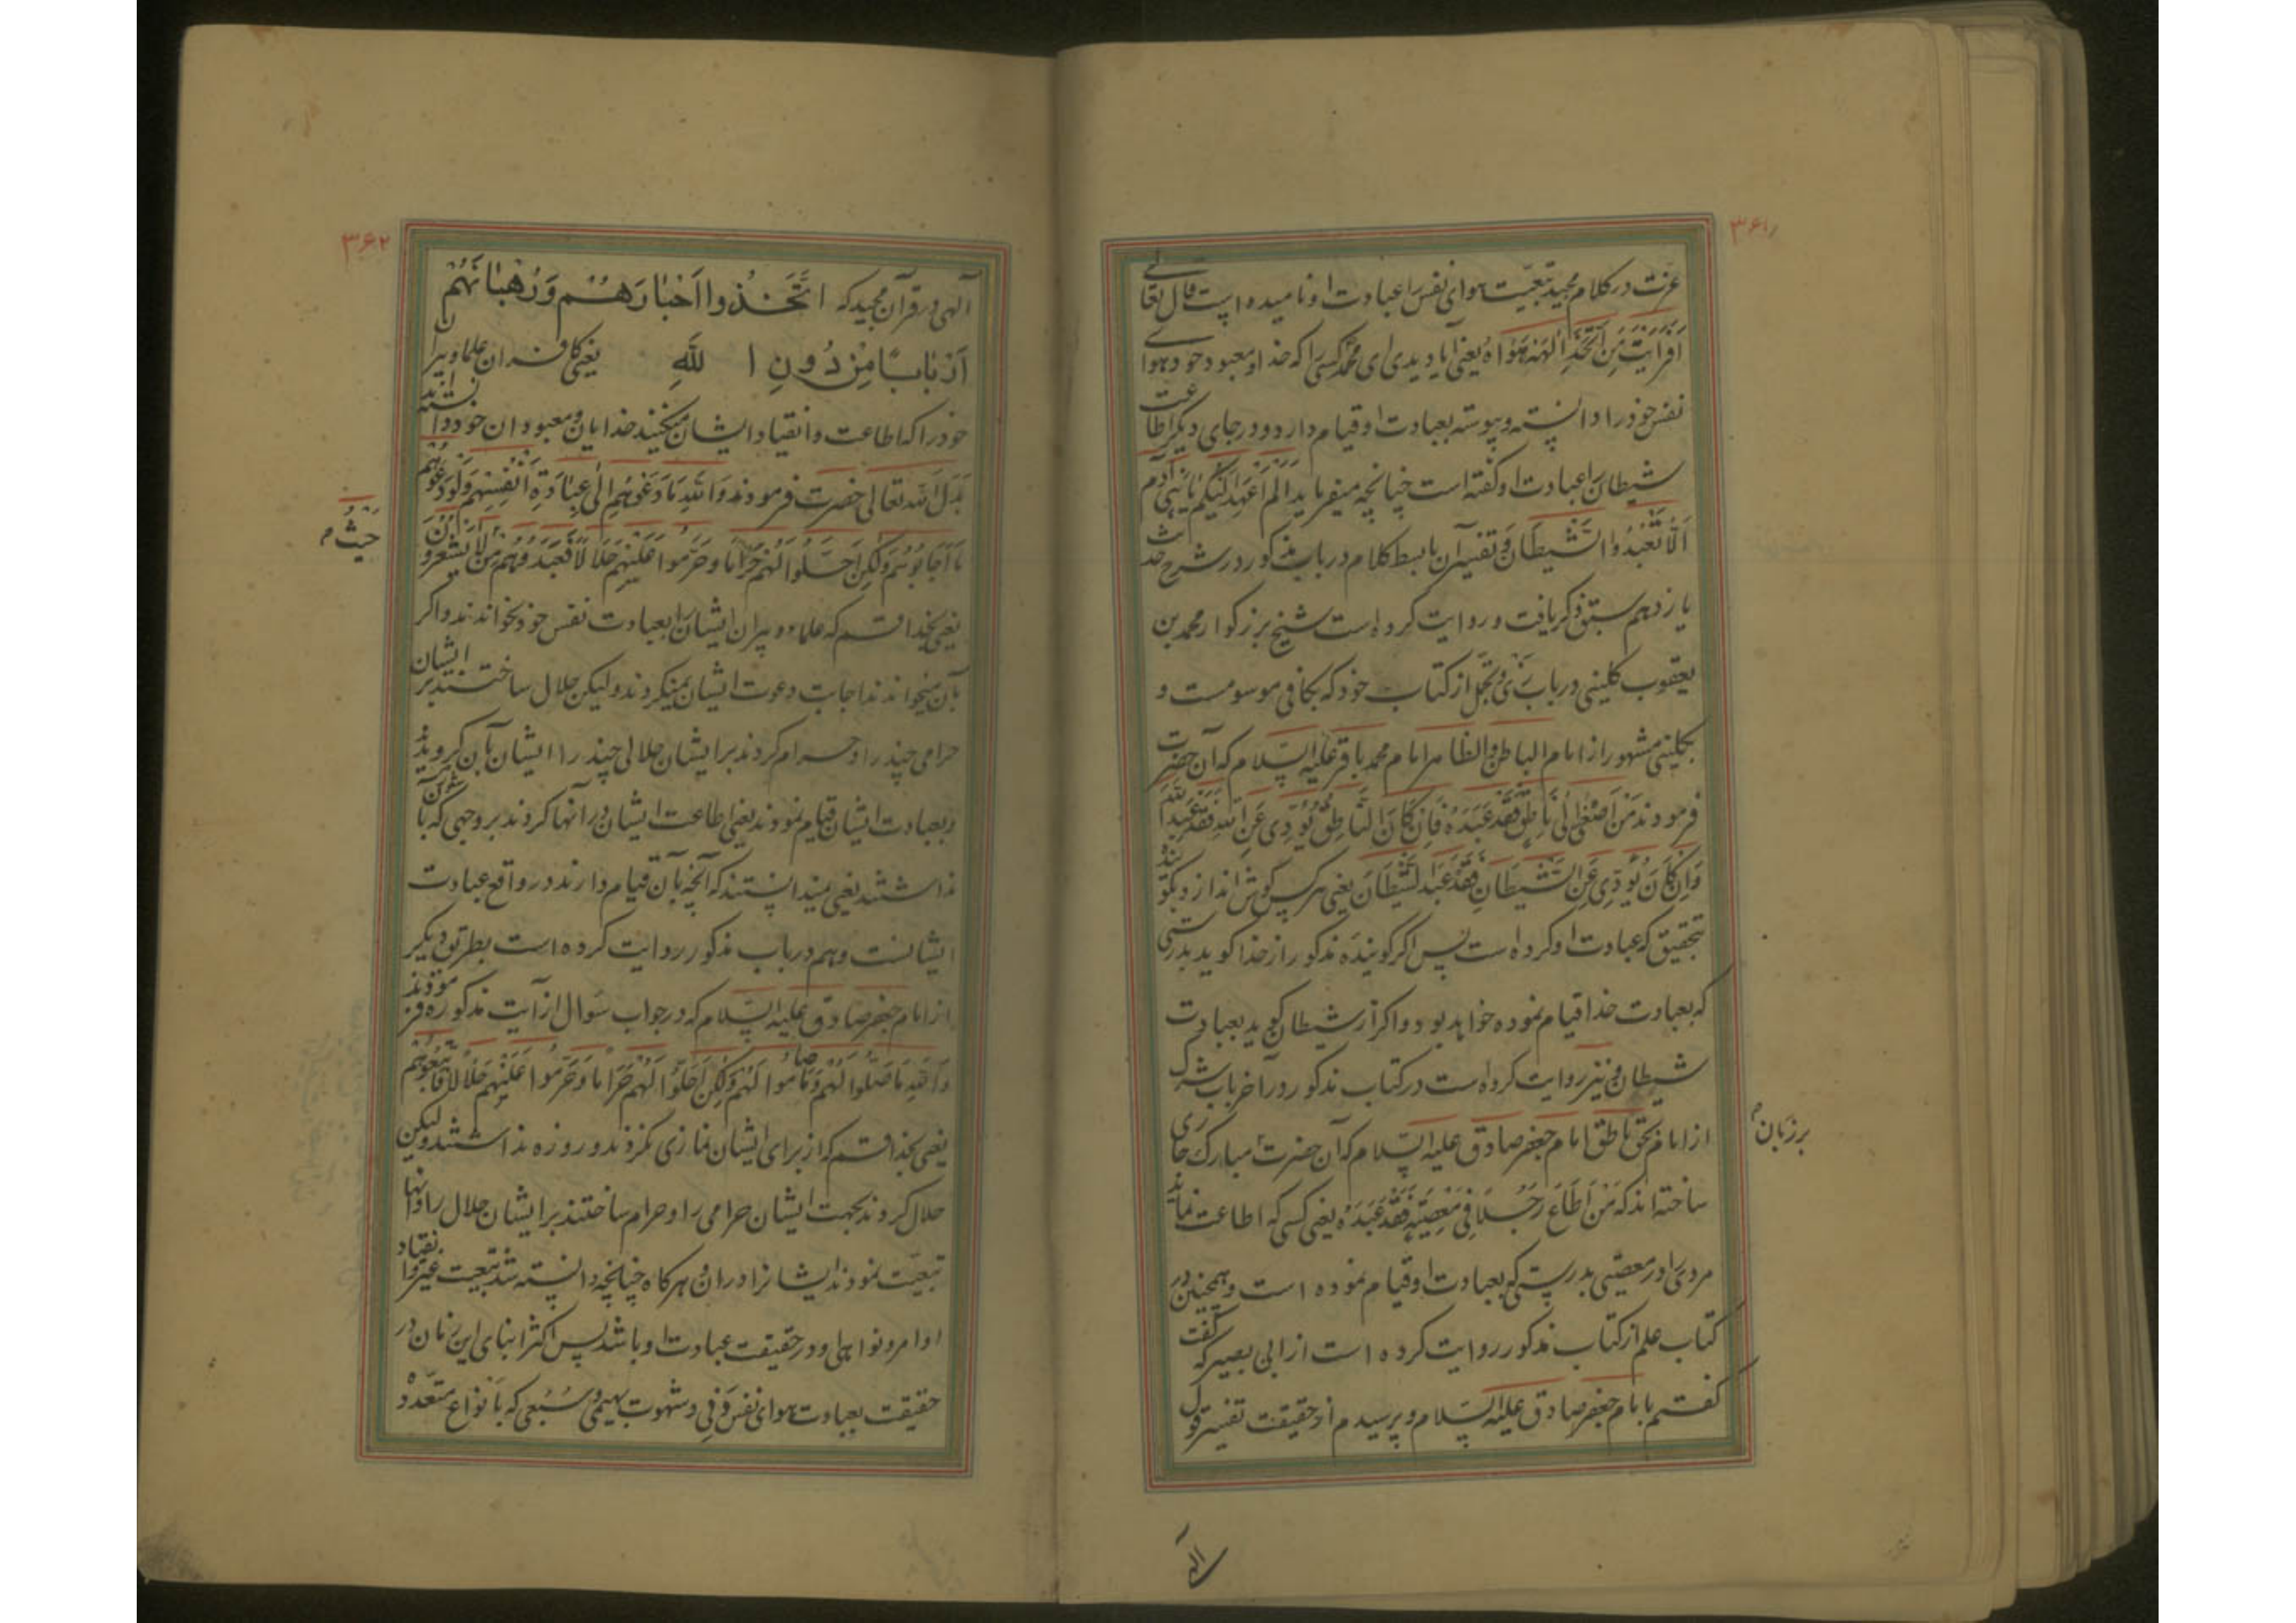 ۳۶۱
عزت در کلام مجید تبعیت هوای نفس را عبادت او نامیده است قال تعالی
افرایت من اتخذ الهه هواه یعنی ایا دیدی ای محمد کسی را که خدا و معبود خود هوای
نفس خود را دانسته و پیوسته بعبادت او قیام دارد و در جای دیگر اطاعت
شیطان را عبادت او گفته است چنانچه میفرماید الم اعهد الیکم یا بنی آدم
اَلّا تَعْبُدُوا الشَّیطَانَ و تفسیر آن با بسط کلام در باب مذکور در شرح حدیث
یازدهم سبق ذکر یافت و روایت کرده است شیخ بزرگوار محمد بن
یعقوب کلینی در باب زی و تجمل از کتاب خود که بکافی موسومست و
بکلینی مشهور از امام الباطن و الظاهر امام محمد باقر علیه السلام که آن حضرت
فرمودند مَن اَصْغٰی اِلٰی نَاطِقٍ فَقَدْ عَبَدَهُ فَاِن کَانَ النَّاطِقُ یُؤَدِّی عَنِ اللهِ فَقَدْ عَبَدَ اللهَ
وَاِن کَانَ یُؤَدِّی عَنِ الشَّیْطَانِ فَقَدْ عَبَدَ الشَّیْطَانَ یعنی هر کس گوش اندازد بگوینده
بتحقیق که عبادت او کرده است پس اگر گوینده مذکور از خدا گوید بدرستی
که بعبادت خدا قیام نموده خواهد بود و اگر از شیطان گوید بعبادت
شیطان و نیز روایت کرده است در کتاب مذکور در آخر باب شرک
از امام بحق ناطق امام جعفر صادق علیه السلام که آن حضرت مبارک جاری
برزبان
ساخته اند که مَنْ اَطَاعَ رَجُلًا فِی مَعْصِیَةٍ فَقَدْ عَبَدَهُ یعنی کسی که اطاعت نماید
مردی را در معصیتی بدرستی که بعبادت او قیام نموده است و همچنین در
کتاب علم از کتاب مذکور روایت کرده است از ابی بصیر که گفت
گفتم بامام جعفر صادق علیه السلام و پرسیدم از حقیقت تفسیر قول
الهی
۳۶۲
آلهی در قرآن مجید که اتَّخَذُوا اَحْبَارَهُمْ وَرُهْبَانَهُمْ
اَرْبَابًا مِنْ دُونِ اللهِ یعنی کافران علما و پیران
خود را که اطاعت و انقیاد ایشان میکنند خدایان و معبودان خود دانستند
بدل الله تعالی حضرت فرمودند وَاللهِ مَا دَعَوْهُمْ اِلٰی عِبَادَةِ اَنْفُسِهِمْ وَلَوْ دَعَوْهُمْ
مَا اَجَابُوهُمْ وَلٰکِنْ اَحَلُّوا لَهُمْ حَرَامًا وَحَرَّمُوا عَلَیْهِمْ حَلَالًا فَعَبَدُوهُمْ مِنْ لَا یَشْعُرُونَ
حَیْثُ
یعنی بخدا قسم که علما و پیران ایشان را بعبادت نفس خود نخواندند و اگر
بآن میخواندند اجابت دعوت ایشان نمیکردند و لیکن حلال ساختند بر ایشان
حرامی چند را و حرام کردند بر ایشان حلالی چند را ایشان بآن گرویدند
و بعبادت ایشان قیام نمودند یعنی اطاعت ایشان در آنها کردند بر وجهی که با آن شعور
نداشتند یعنی نمیدانستند که آنچه بآن قیام دارند در واقع عبادت
ایشانست و هم در باب مذکور روایت کرده است بطریق دیگر
از امام جعفر صادق علیه السلام که در جواب سوال از آیت مذکوره فرمودند
وَاللهِ مَا صَلَّوا لَهُمْ وَمَا صَامُوا لَهُمْ وَلٰکِنْ اَحَلُّوا لَهُمْ حَرَامًا وَحَرَّمُوا عَلَیْهِمْ حَلَالًا فَاتَّبَعُوهُمْ
یعنی بخدا قسم که از برای ایشان نمازی نکردند و روزه نداشتند و لیکن
حلال کردند بجهت ایشان حرامی را و حرام ساختند بر ایشان حلال را و اینها
تبعیت نمودند ایشانرا در ان و هرگاه چنانچه دانسته شد تبعیت غیر و انقیاد
اوامر و نواهی او در حقیقت عبادت او باشد پس اکثر ابنای این زمان در
حقیقت بعبادت هوای نفس و فی و شهوت بهیمی و سبعی که بانواع متعدده